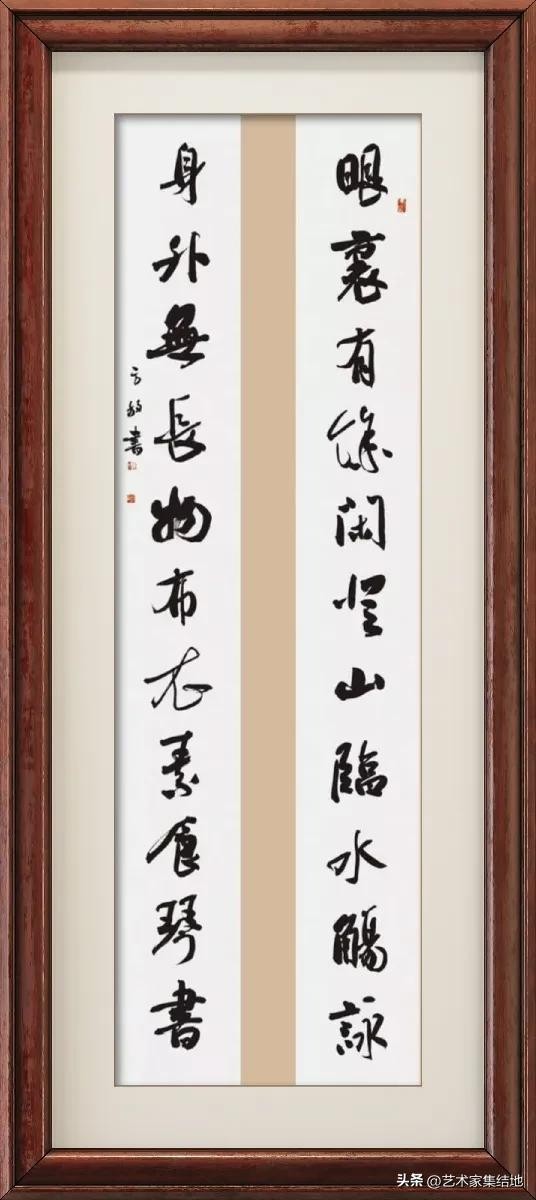 眼裏有餘閑登山臨水觴詠
身外無長物布衣素食琴書
书
头条 @艺术家集结地